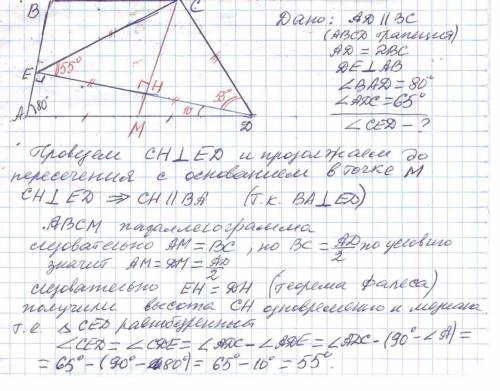 B
C
E
55°
H
55°
A
80°
M
10°
D
Дано: AD ∥ BC
(ABCD трапеция)
AD = 2BC
DE⊥AB
∠BAD = 80°
∠ADC = 65°
∠CED - ?
Проведем CH⊥ED и продолжаем до
пересечения с основанием в точке M
CH⊥ED ⇒ CH ∥ BA (т.к. BA⊥ED)
ABCM параллелограмма
следовательно AM = BC, но BC = AD/2 по условию
значит AM = DM = AD/2
следовательно EH = DH (теорема Фалеса)
получили высота CH одновременно и медиана
т.е △CED равнобедренный
∠CED = ∠CDE = ∠ADC - ∠ADE = ∠ADC - (90° - ∠A) =
= 65° - (90° - 80°) = 65° - 10° = 55°.